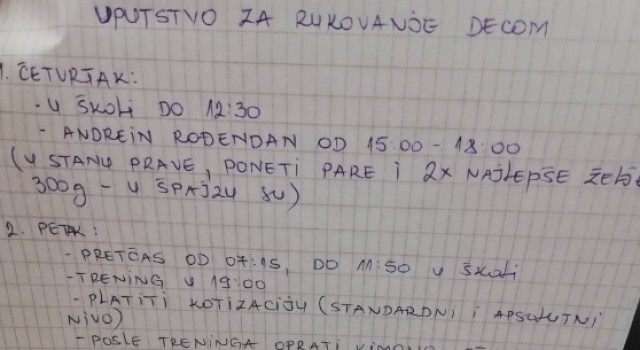 UPUTSTVO ZA RUKOVANJE DECOM
1. ČETVRTAK:
- U ŠKOLI DO 12:30
- ANDREIN ROĐENDAN OD 15:00 - 18:00
(U STANU PRAVE, PONETI PARE I 2X NAJLEPŠE ŽELJE
300g - U ŠPAJZU SU)
2. PETAK:
- PRETČAS OD 07:15, DO 11:50 U ŠKOLI
- TRENING U 19:00
- PLATITI KOTIZACIJU (STANDARDNI I APSOLUTNI
NIVO)
- POSLE TRENINGA OPRATI KIMONO